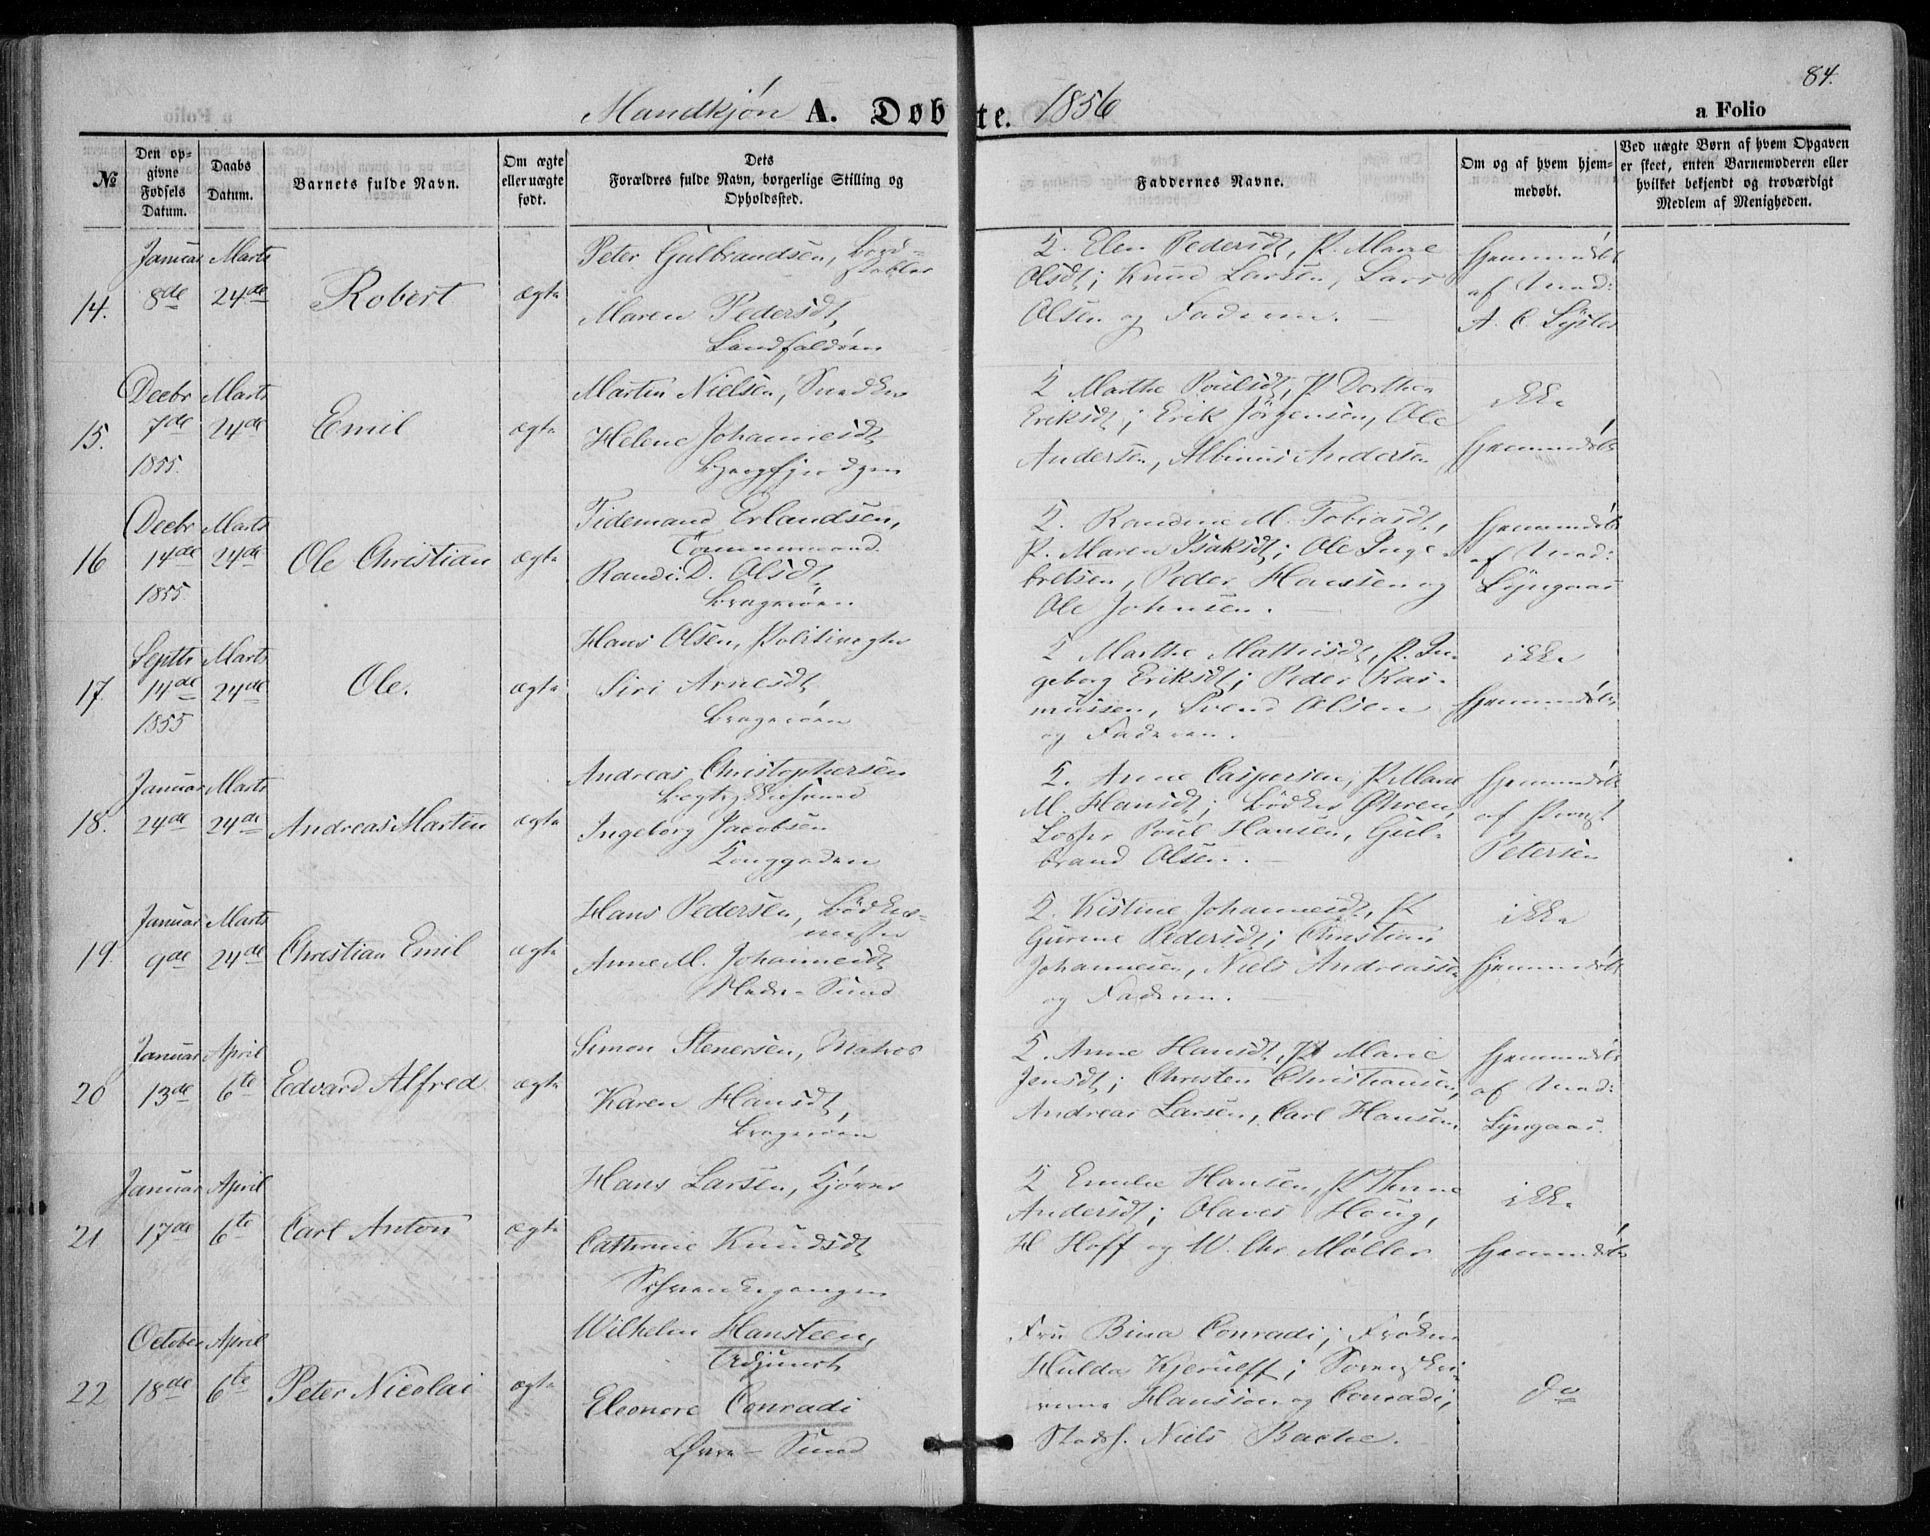 84.
Mandkjøn A. Døbte. 1856
a Folio
№
Den opgivne Fødsels Datum.
Daabs Datum.
Barnets fulde Navn.
Om ægte eller uægte født.
Dets Forældres fulde Navn, borgerlige Stilling og Opholdssted.
Faddernes Navne.
Om og af hvem hjemmedøbt.
Ved uægte Børn af hvem Opgaven er skeet, enten Barnemoderen eller hvilket bekjendt og troværdigt Medlem af Menigheden.
14.
Januar
8de
Marts
24de
Robert
ægte
Peter Gulbrandsen,
Maren Pedersdt,
Landfaldøen
Elen Pedersdt, P. Marie
Olsdt; Knud Larsen, Lars
Olsen og Faderen.
Hjemmedøbt
af Mad:
A. C. Lyster
15.
Decbr
7de
1855
Marts
24de
Emil
ægte
Martin Nielsen, Snedker
Helene Johannesdt
Marthe Poulsdt, P. Dorthea
Eriksdt; Erik Jörgensen, Ole
Andersen, Albinus Andersen
ikke
hjemmedøbt
16
Decbr
14de
1855
Marts
24de
Ole Christian
ægte
Tidemand Erlandsen,
Tømmermand
Randi D. Olsdt,
Bragerøen
Randine M. Tobiasdt,
P. Maren Isaksdt; Ole Inge-
bretsen, Peder Hansen og
Ole Johnsen.
Hjemmedøbt
af Mad:
Lyngaas
17.
Septbr
14de
1855
Marts
24de
Ole.
ægte
Hans Olsen, Politivægter
Siri Arnesdt
Bragerøen
Marthe Mathisdt, P. In-
geborg Eriksdt; Peder Ras-
mussen, Svend Olsen
og Faderen.
ikke
hjemmedøbt
18.
Januar
24de
Marts
24de
Andreas Martin
ægte
Andreas Christophersen
Ingeborg Jacobsen
Konggaden
Anne Caspersen, P. Maren
M. Hansdt; Bödker Øhren,
Poul Hansen, Gul-
brand Olsen.
Hjemmedøbt
af Provst
Petersen
19.
Januar
9de
Marts
24de
Christian Emil
ægte
Hans Pedersen, Bødker-
mester
Anne M. Johannesdt
Nedre-Sund
Kistine Johannesdt, P.
Gurine Pedersdt; Christian
Johannesen, Niels Andreassen
og Faderen.
ikke
hjemmedøbt
20
Januar
13de
April
6te
Edvard Alfred
ægte
Simon Stenersen, Matros
Karen Hansdt,
Bragerøen
Anne Hansdt, P. Marie
Jensdt; Christen Christiansen,
Andreas Larsen, Carl Hansen.
Hjemmedøbt
af Mad:
Lyngaas.
21
Januar
17de
April
6te
Carl Anton
ægte
Hans Larsen, Kjører
Cathrine Knudsdt
Emilie Hansen, P. Thrine
Andersdt; Olaves Houg,
H Hoff og W. Chr Møller
ikke
hjemmedøbt
22
October
18de
April
6te
Peter Nicolai
ægte
Wilhelm Hansteen,
Adjunct
Eleonore Conradi
Øvre-Sund
Fru Bina Conradi; Frøken
Hulda Kjerulff; Sorenskri-
verne Hansson og Conradi,
Niels Bache.
do